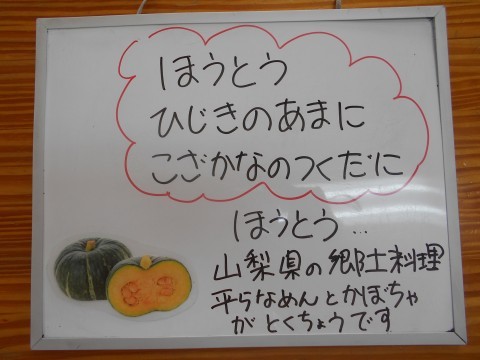 ほうとう
ひじきのあまに
こざかなのつくだに
ほうとう…
山梨県の郷土料理
平らなめんとかぼちゃ
がとくちょうです